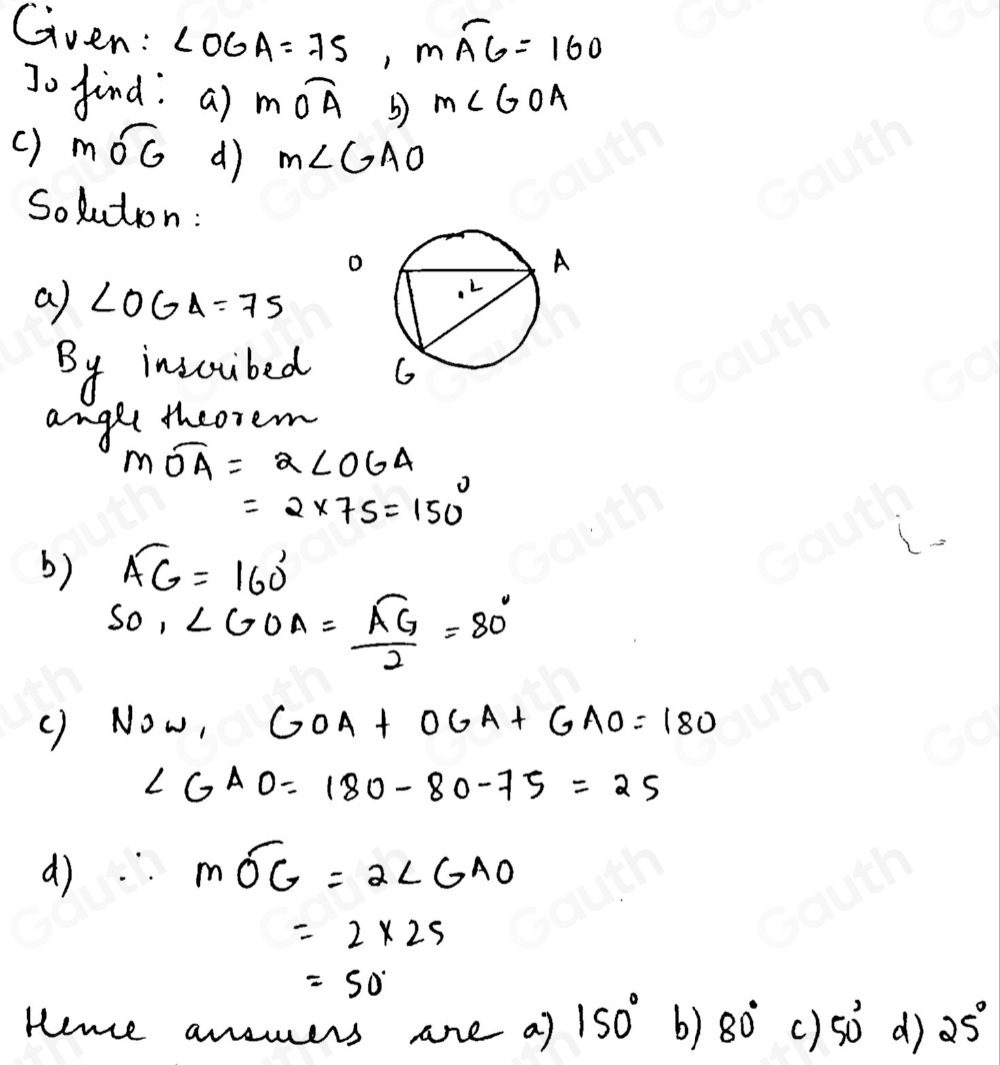 Given: ∠OGA = 75 , m A͡G = 160
To find: a) m O͡A b) m∠GOA
c) m O͡G d) m∠GAO
Solution:
O A
.L
G
a) ∠OGA = 75
By inscribed
angle theorem
m O͡A = 2∠OGA
= 2×75 = 150°
b) A͡G = 160°
So, ∠GOA = A͡G/2 = 80°
c) Now, GOA + OGA + GAO = 180
∠GAO = 180 - 80 - 75 = 25
d) ∴ m O͡G = 2∠GAO
= 2 × 25
= 50°
Hence answers are a) 150° b) 80° c) 50° d) 25°